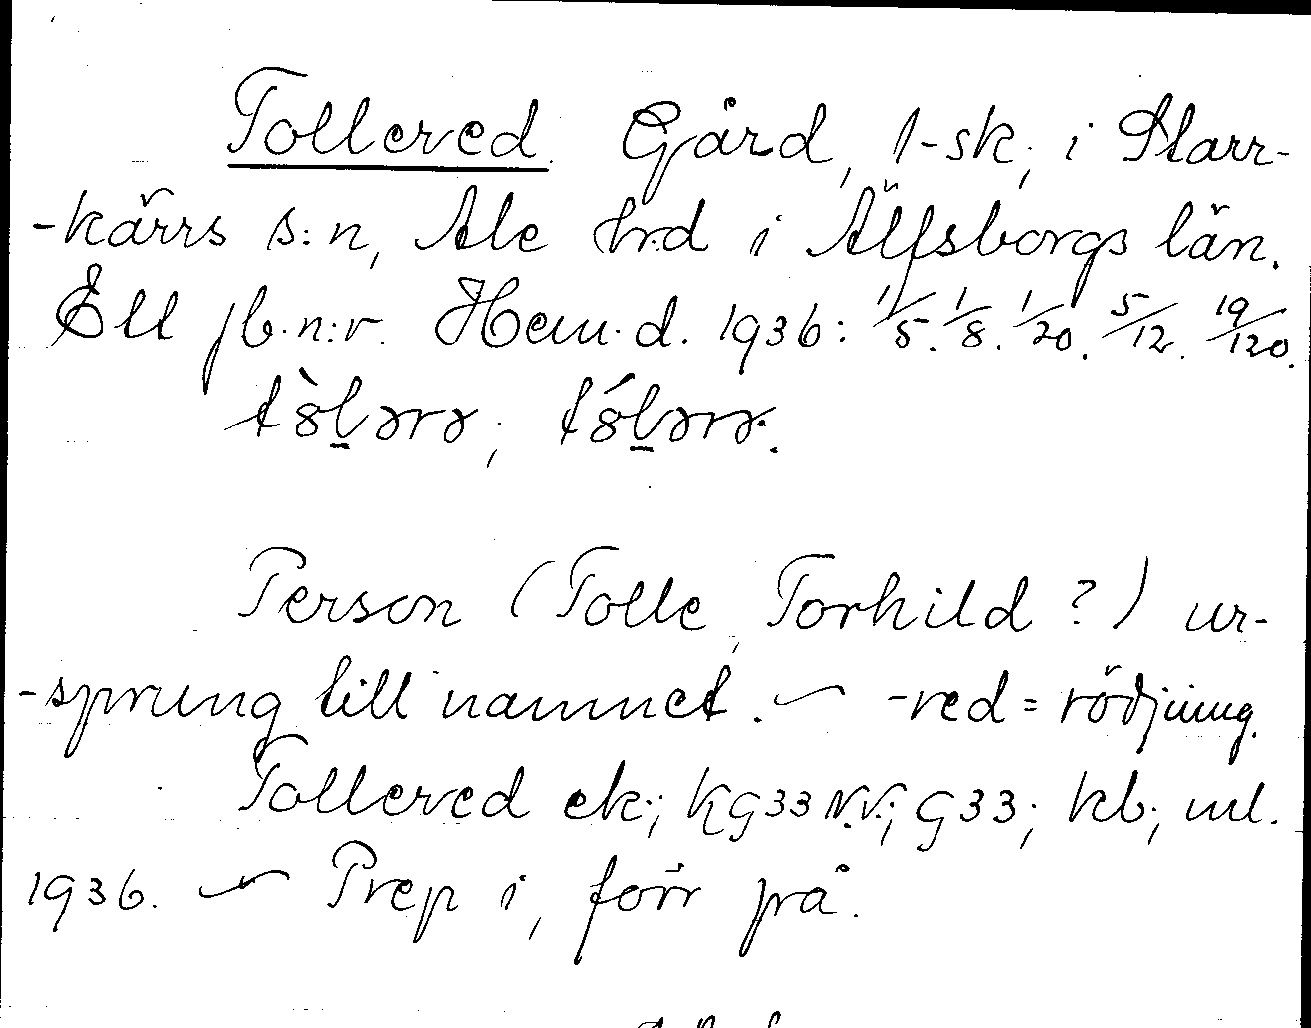 Tollered. Gård, 1-sk, i Starr-
-kärrs s:n, Ale hrd i Älfsborgs län.
Ett jb.n:r. Hem.d. 1936: 1/5. 1/8. 1/20. 5/12. 19/120.
Person (Tolle, Torhild?) ur-
-sprung till namnet. — -red = rödjning.
Tollered ek; KG33 N.V.; G33; kb; ml.
1936. — Prep i, förr på.